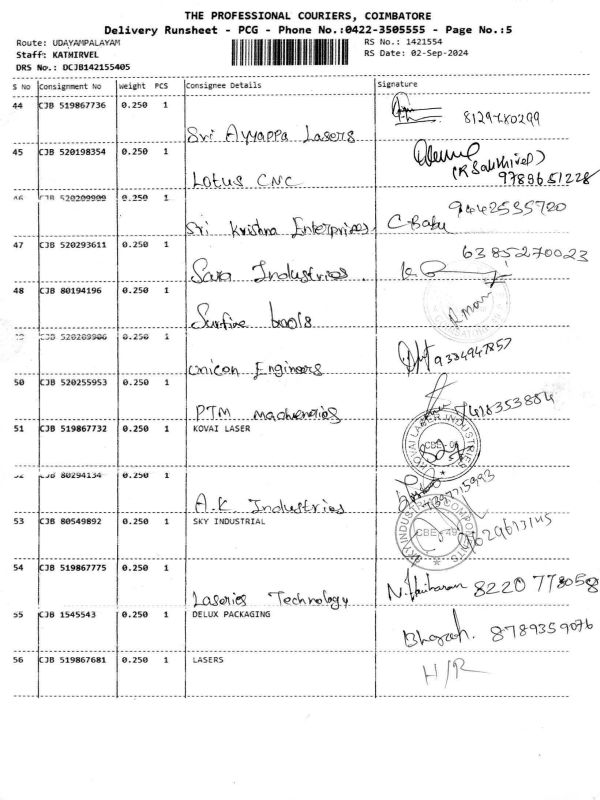 THE PROFESSIONAL COURIERS, COIMBATORE
Delivery Runsheet - PCG - Phone No.:0422-3505555 - Page No.:5
Route: UDAYAMPALAYAM
RS No.: 1421554
Staff: KATHIRVEL
RS Date: 02-Sep-2024
DRS No.: DCJB142155405
S No Consignment No Weight PCS Consignee Details Signature
44 CJB 519867736 0.250 1
Sri Ayyappa Lasers
45 CJB 520198354 0.250 1
Lotus CNC
(R Sakthivel)
9789651228
46 CJB 520209909 0.250 1
Sri Krishna Enterprises. C-Babu 9442535720
47 CJB 520293611 0.250 1
Sara Industries. 6385270023
48 CJB 80194196 0.250 1
Surfine tools
49 CJB 520209906 0.250 1
Unicon Engineers 9334947857
50 CJB 520255953 0.250 1
PTM machineries 7418353884
51 CJB 519867732 0.250 1 KOVAI LASER
KOVAI LASER INDUSTRIES
52 CJB 80294134 0.250 1
A.K. Industries
53 CJB 80549892 0.250 1 SKY INDUSTRIAL
SKY INDUSTRIAL COMPONENTS
CBE-49
54 CJB 519867775 0.250 1
Laseries Technology N. Hariharan 8220778058
55 CJB 1545543 0.250 1 DELUX PACKAGING
8789359076
56 CJB 519867681 0.250 1 LASERS
H/R